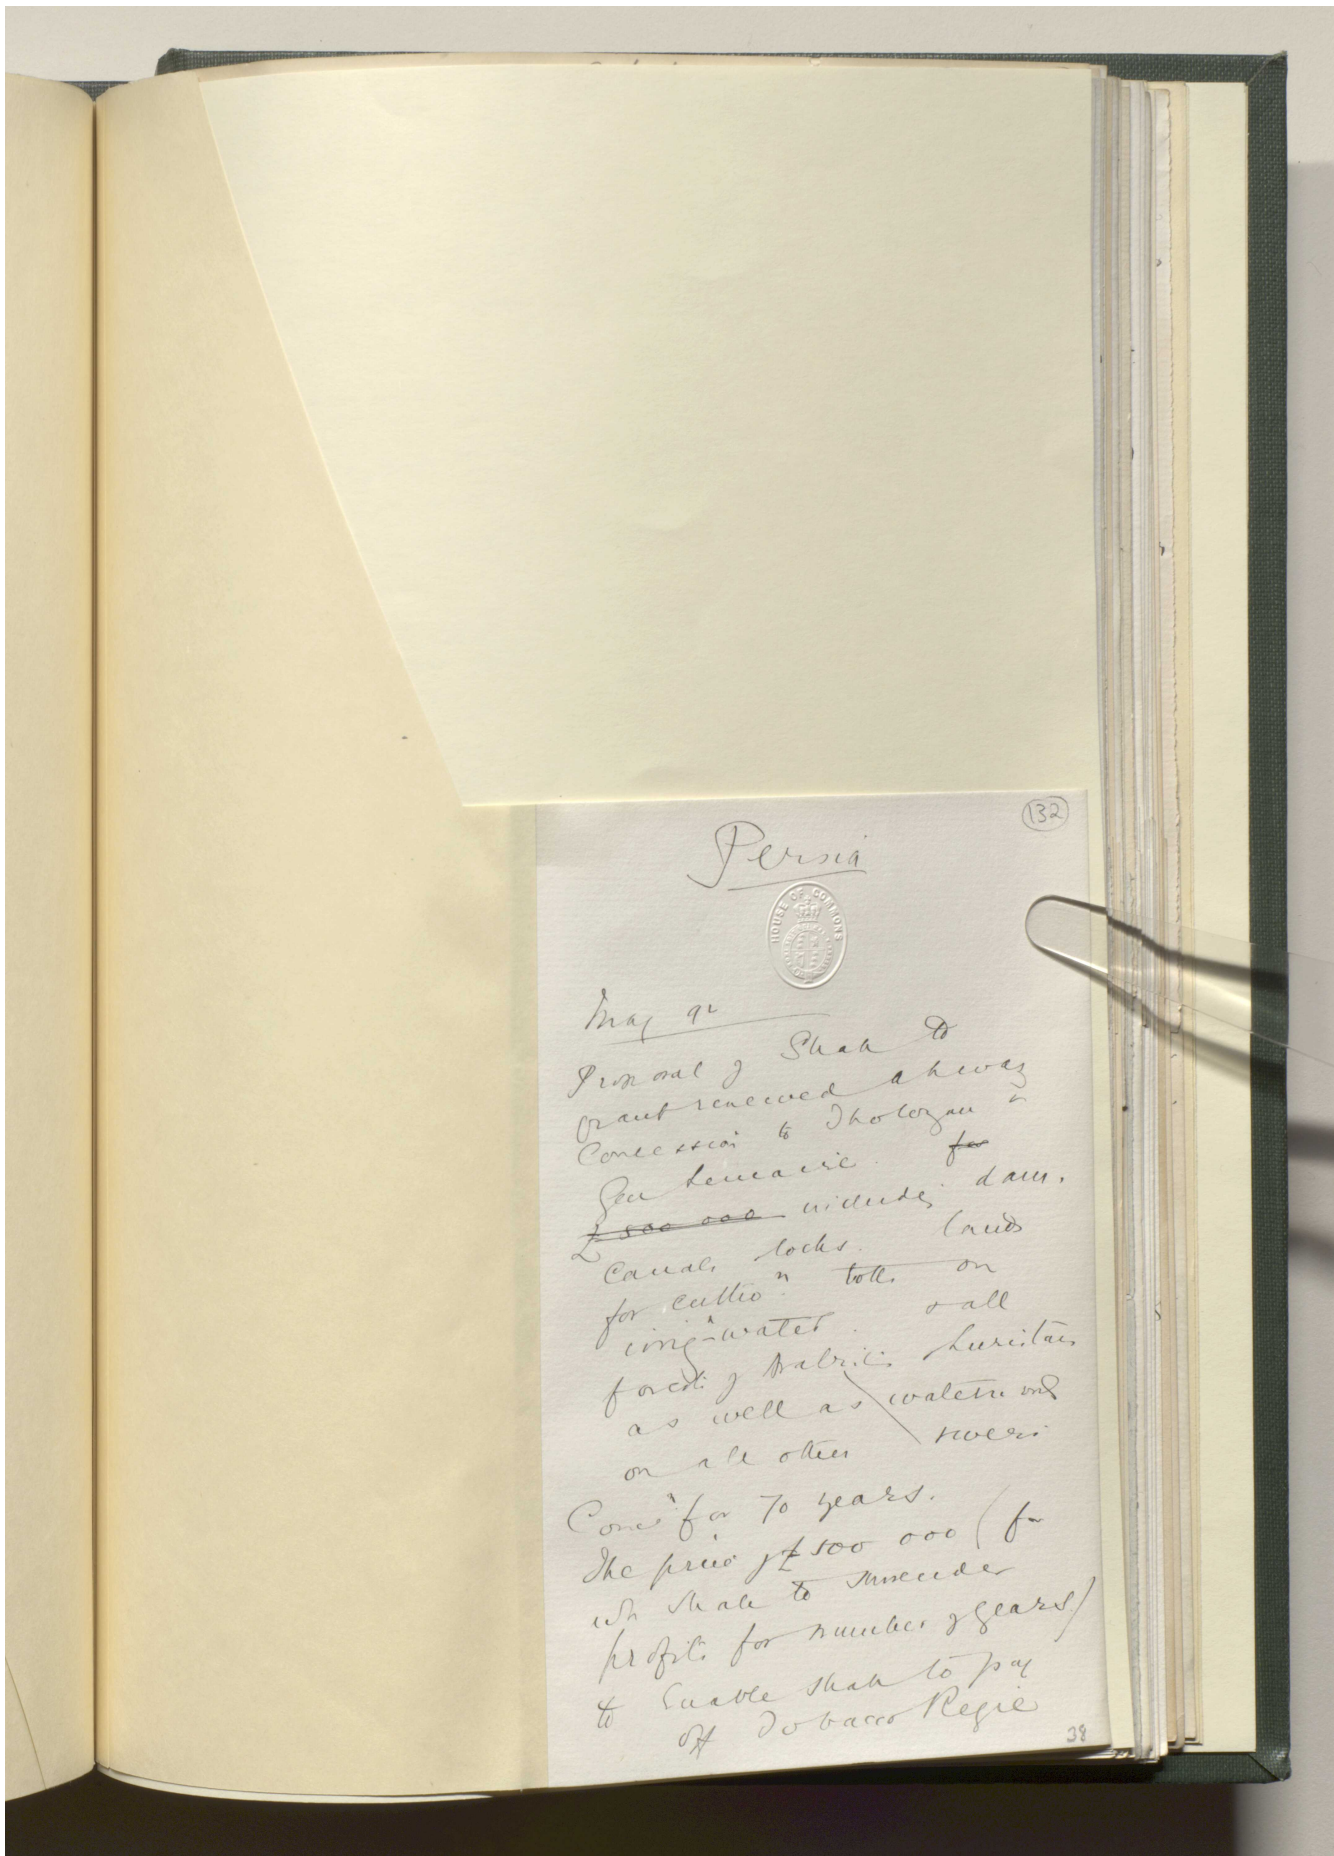 132
Persia
HOUSE OF COMMONS
May 92
Proposal of Shah to
grant renewed Ahwaz
Concession to Tholozan &
Gen Lemaire. for
£500 000 includes dam.
canals locks. lands
for cultion. tolls on
irrign water. & all
forests of Arabis Luristan
as well as waterwd
on all other rivers
Concn for 70 years.
The price of £500 000 (for
wh Shah to surrender
profits for number of years)
to enable Shah to pay
off Tobacco Regie
38